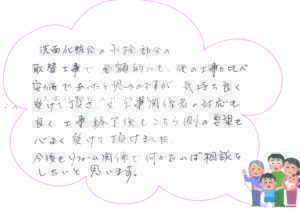 洗面化粧台の水栓部分の
取替工事で 金額的にも、他の工事と比べ
安価であったと思うのですが 気持ち良く
受けて頂き 工事関係者の対応も
良く 工事終了後もこちら側の要望も
心よく受けて頂けました。
今後もリフォーム関係で何かあれば相談を
したいと思います。